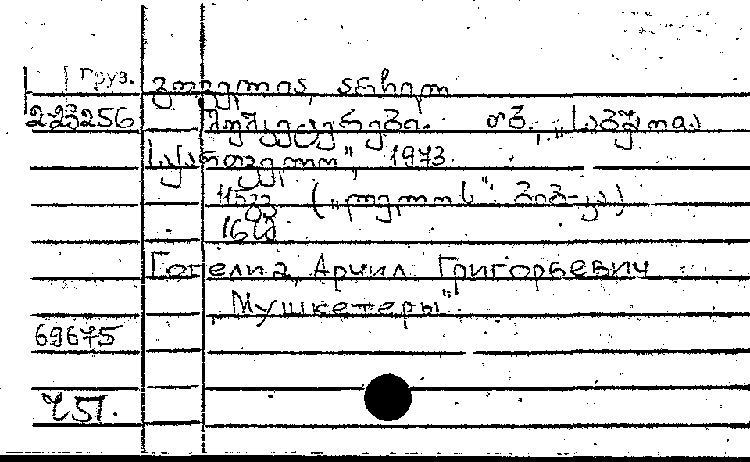 Груз. გოგელია, არჩილ
223256 მუშკეტერები. თბ., „საბჭოთა
საქართველო", 1973.
45გვ („ლელოს" ბიბ-კა)
Гогелиа, Арчил Григорьевич
„Мушкетеры".
69675